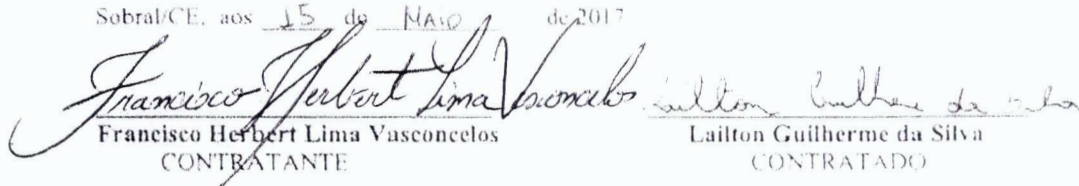 Sobral/CE, aos 15 de MAIO de 2017
Francisco Herbert Lima Vasconcelos Lailton Guilherme da Silva
Francisco Herbert Lima Vasconcelos Lailton Guilherme da Silva
CONTRATANTE CONTRATADO